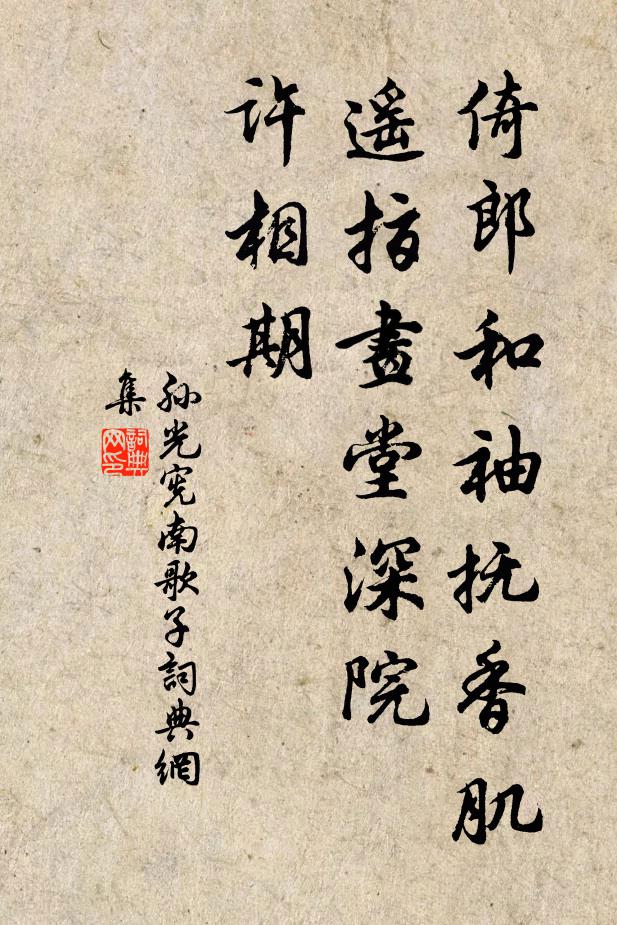 倚郎和袖抚香肌
遥指畫堂深院
许相期
孙光宪南歌子詞典網
集
詞典
网印